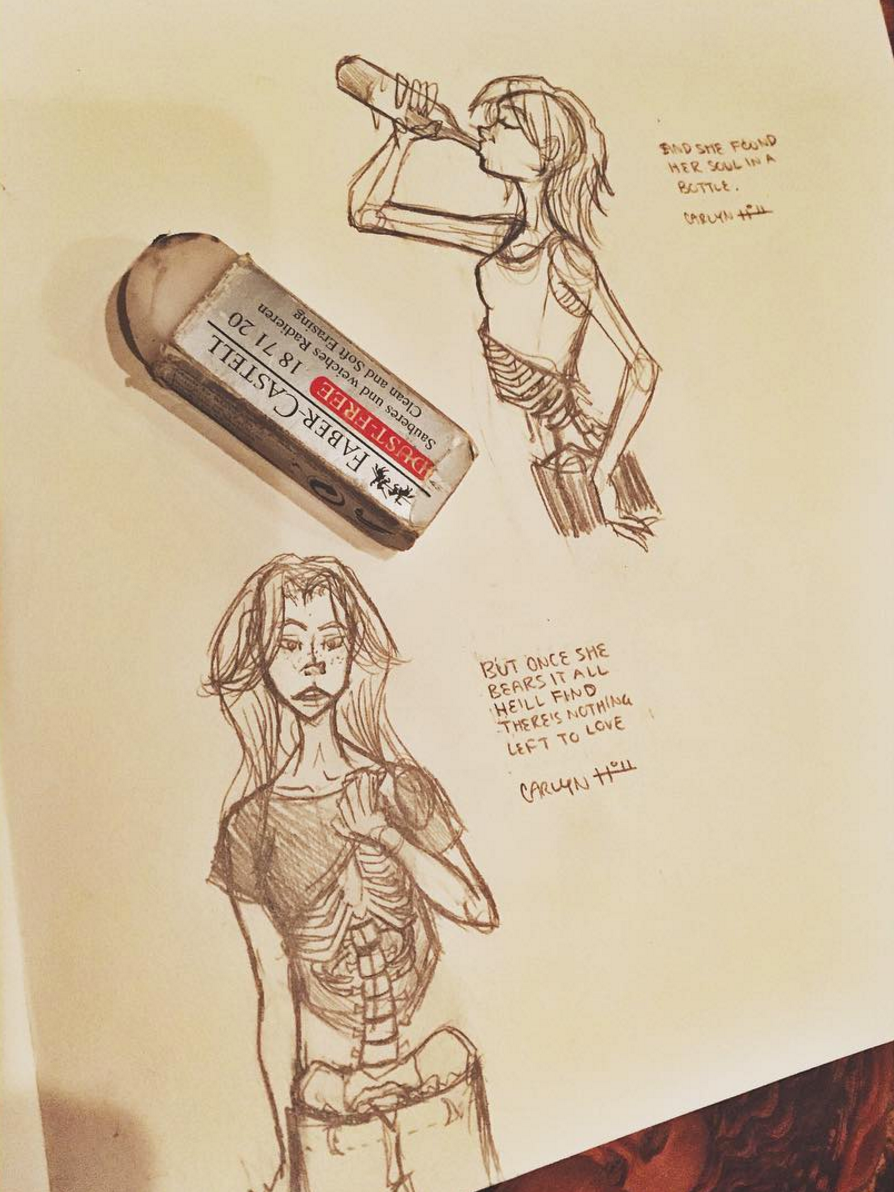 AND SHE FOUND
HER SOUL IN A
BOTTLE.
CARLYN Hill
FABER-CASTELL
DUST-FREE 18 71 20
Sauberes und weiches Radieren
Clean and Soft Erasing
BUT ONCE SHE
BEARS IT ALL
HE'LL FIND
THERE'S NOTHING
LEFT TO LOVE
CARLYN Hill